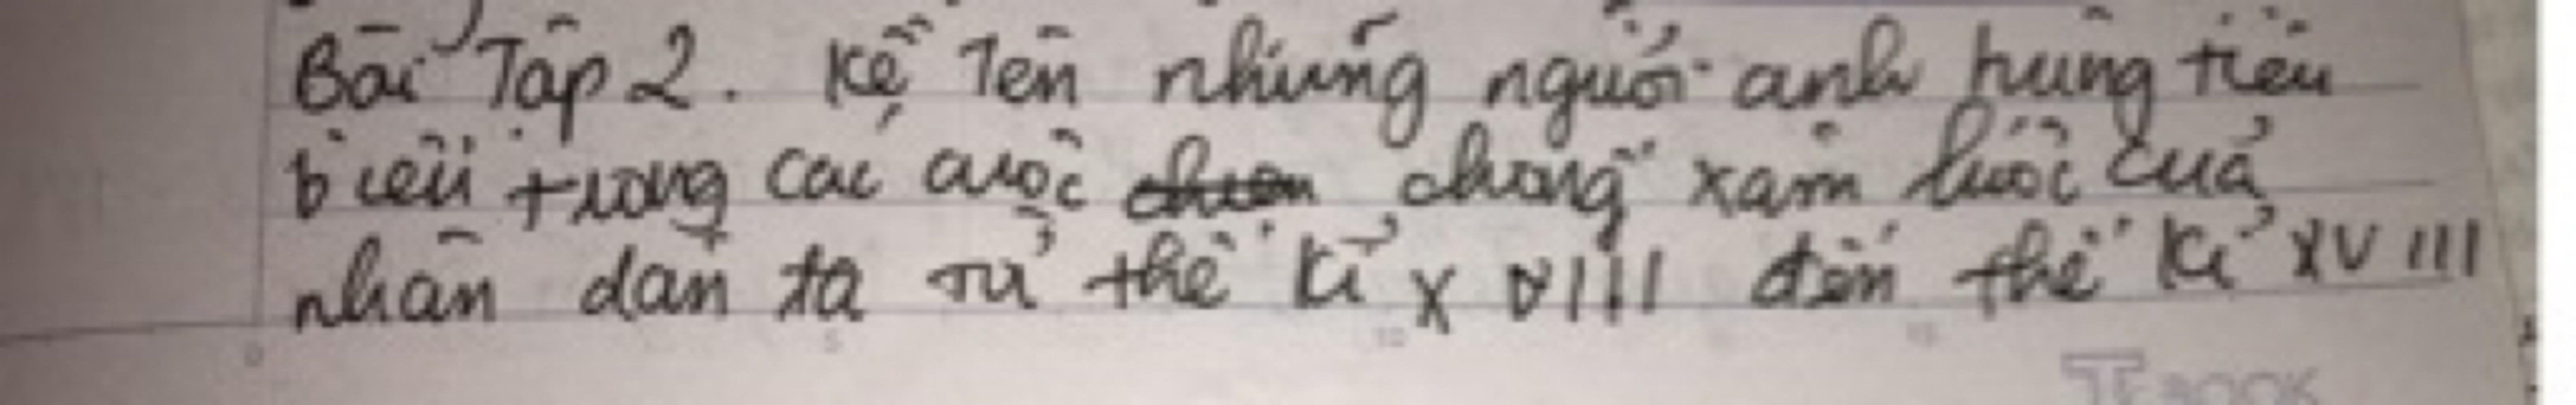 Bài Tập 2. Kể Tên những người anh hùng tiêu
biểu trong các cuộc chống xâm lược của
nhân dân ta từ thế kỉ XVIII đến thế kỉ XVIII